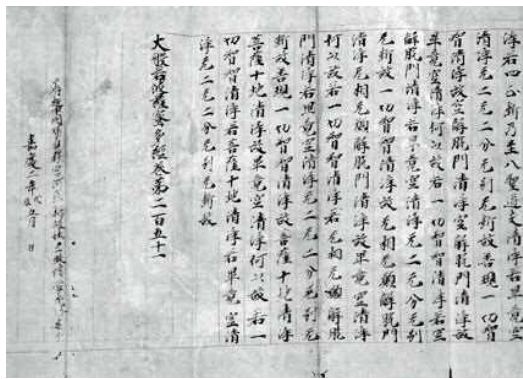 淨若四正斷乃至八聖道支清淨若畢竟空
清淨无二无二分无別无斷故善現一切智
智清淨故空解脫門清淨空解脫門清淨故
畢竟空清淨何以故若一切智智清淨若空
解脫門清淨若畢竟空清淨无二无二分无別
无斷故一切智智清淨故无相无願解脫門
清淨无相无願解脫門清淨故畢竟空清淨
何以故若一切智智清淨若无相无願解脫
門清淨若畢竟空清淨无二无二分无別无
斷故善現一切智智清淨故菩薩十地清淨
菩薩十地清淨故畢竟空清淨何以故若一
切智智清淨若菩薩十地清淨若畢竟空清
淨无二无二分无別无斷故
大般若波羅蜜多經卷第二百五十一
嘉慶二年五月 日